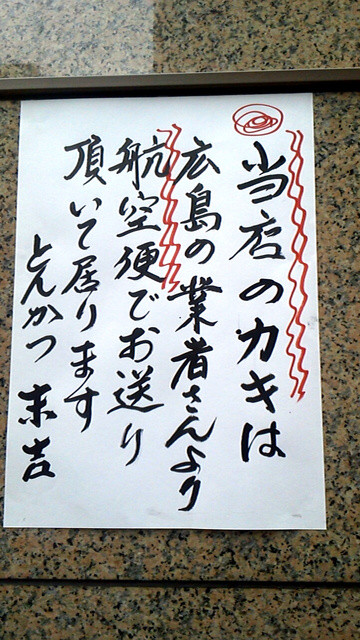 当店のカキは
広島の業者さんより
航空便でお送り
頂いて居ります
とんかつ 末吉